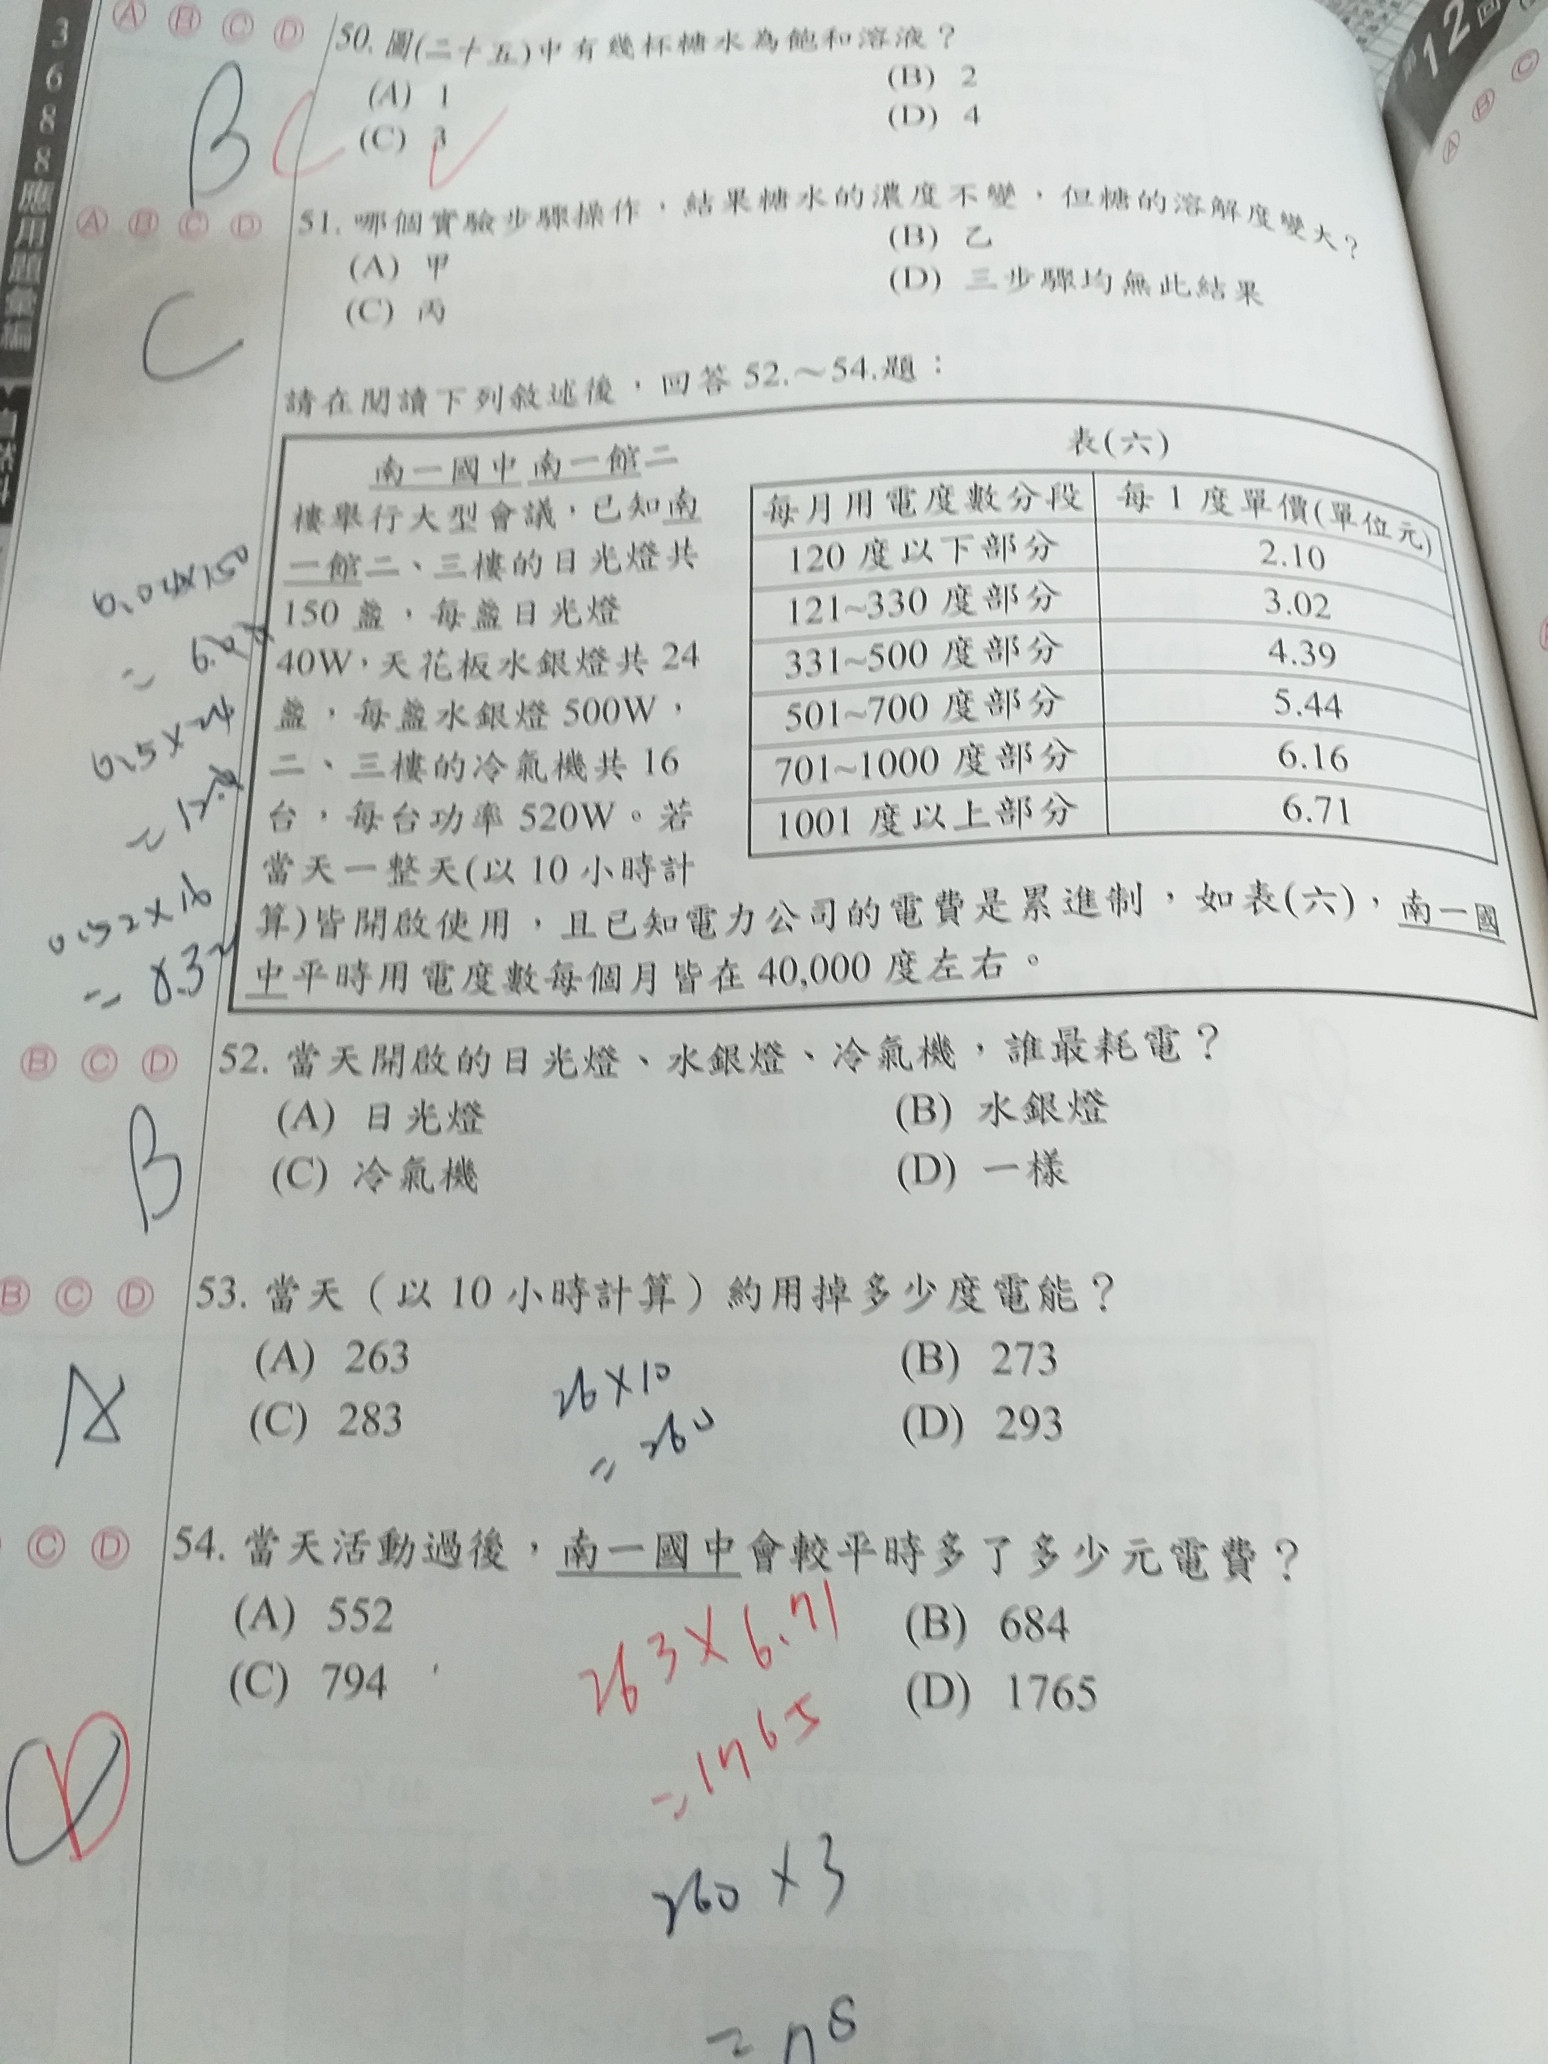 3688應用題彙編
第12回
Ⓐ Ⓑ Ⓒ Ⓓ
50. 圖(二十五)中有幾杯糖水為飽和溶液？
(A) 1
(B) 2
(C) 3
(D) 4
B
C
Ⓐ Ⓑ Ⓒ Ⓓ
51. 哪個實驗步驟操作，結果糖水的濃度不變，但糖的溶解度變大？
(A) 甲
(B) 乙
(C) 丙
(D) 三步驟均無此結果
C
請在閱讀下列敘述後，回答 52.～54.題：
南一國中南一館二
樓舉行大型會議，已知南
一館二、三樓的日光燈共
150 盞，每盞日光燈
40W，天花板水銀燈共 24
盞，每盞水銀燈 500W，
二、三樓的冷氣機共 16
台，每台功率 520W。若
當天一整天(以 10 小時計
算)皆開啟使用，且已知電力公司的電費是累進制，如表(六)，南一國
中平時用電度數每個月皆在 40,000 度左右。
表(六)
每月用電度數分段 每 1 度單價(單位元)
120 度以下部分 2.10
121~330 度部分 3.02
331~500 度部分 4.39
501~700 度部分 5.44
701~1000 度部分 6.16
1001 度以上部分 6.71
0.04×150
0.5×24
0.52×16
= 8.32
Ⓑ Ⓒ Ⓓ
52. 當天開啟的日光燈、水銀燈、冷氣機，誰最耗電？
(A) 日光燈
(B) 水銀燈
(C) 冷氣機
(D) 一樣
B
Ⓑ Ⓒ Ⓓ
53. 當天（以 10 小時計算）約用掉多少度電能？
(A) 263
(B) 273
(C) 283
(D) 293
A
26×10
= 260
Ⓒ Ⓓ
54. 當天活動過後，南一國中會較平時多了多少元電費？
(A) 552
(B) 684
(C) 794
(D) 1765
D
263×6.71
=1765
260×3
= 78